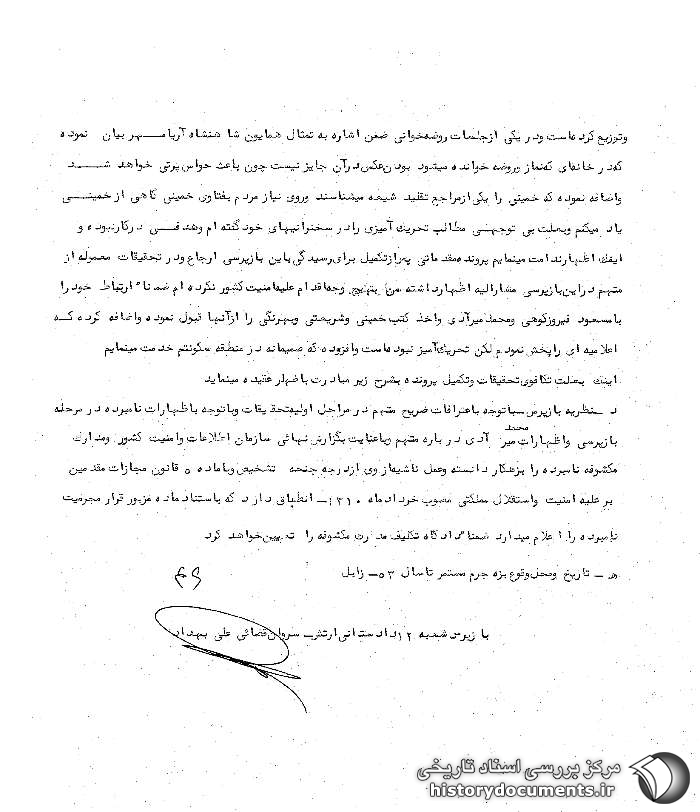 وتوزیع کرده است ودر یکی ازجلسات روضه خوانی ضمن اشاره به تمثال همایون شاهنشاه آریامهر بیان نموده
که در خانه ای که نماز وروضه خوانده میشود بودن عکس در آن جایز نیست چون باعث حواس پرتی خواهد شد
واضافه نموده که خمینی را یکی از مراجع تقلید شیعه میشناسند وروی نیاز مردم بفتاوی خمینی گاهی از خمینی
یاد میکنم وبعلت بی توجهی مطالب تحریک آمیزی را در سخنرانیهای خود گفته ام وهدفی در کار نبوده و
اینک اظهار ندامت مینمایم پرونده مقدماتی پس از تکمیل برای رسیدگی باین بازپرسی ارجاع ودر تحقیقات معموله از
متهم در این بازپرسی مشارالیه اظهار داشته من بهیچ وجه اقدام علیه امنیت کشور نکرده ام ضمناً ارتباط خود را
با مسعود فیروزکوهی ومحمد میرآدی واخذ کتب خمینی وشریعتی وبهرنگی را از آنها قبول نموده واضافه کرده که
اعلامیه ای را پخش نمودم لکن تحریک آمیز نبوده است وافزوده که صمیمانه در منطقه سکونتم خدمت مینمایم
اینک بعلت تکافوی تحقیقات وتکمیل پرونده بشرح زیر مبادرت باظهار عقیده مینماید
د ـ نظریه بازپرس ـ با توجه باعترافات صریح متهم در مراحل اولیه تحقیقات وباتوجه باظهارات نامبرده در مرحله
بازپرسی واظهارات محمد میر آدی در باره متهم وباعنایت بگزارش نهائی سازمان اطلاعات وامنیت کشور ومدارک
مکشوفه نامبرده را بزهکار دانسته وعمل ناشیه از وی از درجه جنحه تشخیص وباماده ۵ قانون مجازات مقدمین
بر علیه امنیت واستقلال مملکتی مصوب خرداد ماه ۱۳۱۰ـ انطباق دارد که باستناد ماده مزبور قرار مجرمیت
نامبرده را اعلام میدارد ضمناً دادگاه تکلیف مدارک مکشوفه را تعیین خواهد کرد
هـ ـ تاریخ ومحل وقوع بزه جرم مستمر تا سال ۵۳ـ زابل
بازپرس شعبه ۱۲ دادستانی ارتش ـ سروان قضائی علی بهداد
مرکز بررسی اسناد تاریخی
historydocuments.ir